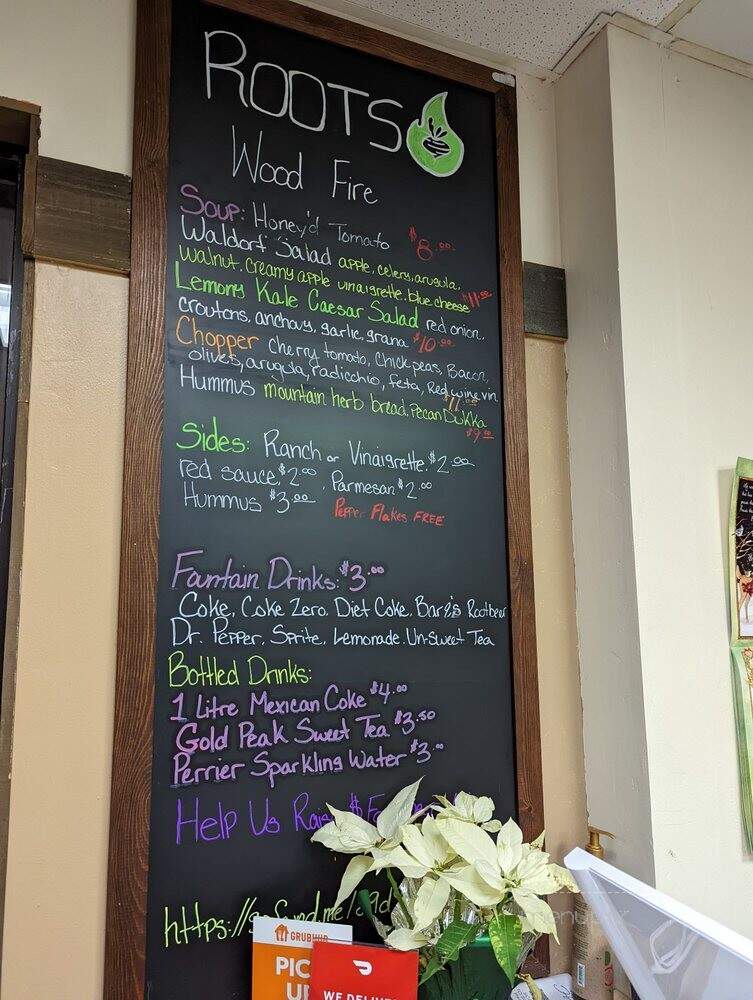 ROOTS
Wood Fire
Soup: Honey'd Tomato $8.00
Waldorf Salad apple, celery, arugula,
walnut, creamy apple vinaigrette, blue cheese $11.00
Lemony Kale Caesar Salad red onion,
croutons, anchovy, garlic, grana $10.00
Chopper cherry tomato, chick peas, Bacon,
olives, arugula, radicchio, feta, Red wine vin
$11.00
Hummus mountain herb bread, Pecan Dukka
$9.00
Sides: Ranch or Vinaigrette, $2.00
red sauce, $2.00, Parmesan $2.00
Hummus $3.00 Pepper Flakes FREE
Fountain Drinks: $3.00
Coke, Coke Zero, Diet Coke, Barq's Rootbeer
Dr. Pepper, Sprite, Lemonade, Un-Sweet Tea
Bottled Drinks:
1 Litre Mexican Coke $4.00
Gold Peak Sweet Tea $3.50
Perrier Sparkling Water $3.00
Help Us Raise $
https://gofund.me/
GRUBHUB
PICK
UP
WE DELIVER